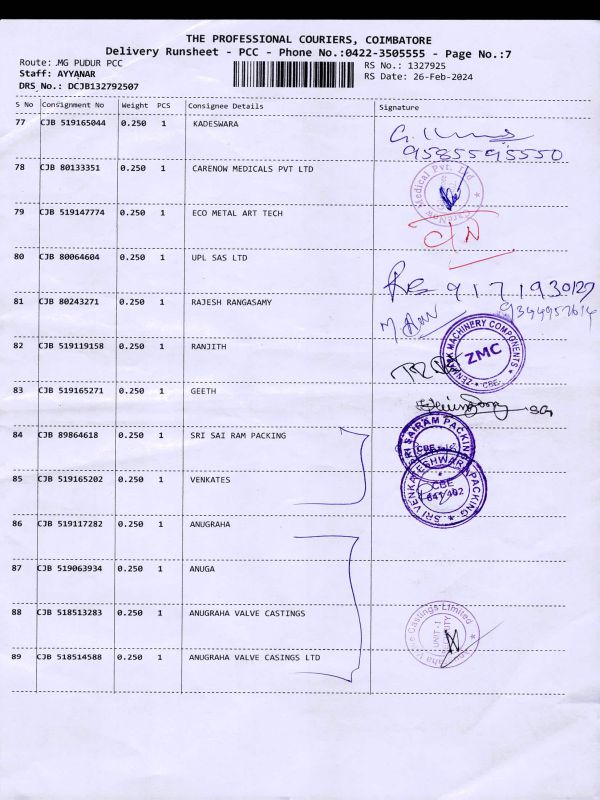 THE PROFESSIONAL COURIERS, COIMBATORE
Delivery Runsheet - PCC - Phone No.:0422-3505555 - Page No.:7
Route: MG PUDUR PCC
RS No.: 1327925
Staff: AYYANAR
RS Date: 26-Feb-2024
DRS No.: DCJB132792507
S No Consignment No Weight PCS Consignee Details Signature
77 CJB 519165044 0.250 1 KADESWARA
9585595550
78 CJB 80133351 0.250 1 CARENOW MEDICALS PVT LTD
CareNow Medical Pvt. Ltd
79 CJB 519147774 0.250 1 ECO METAL ART TECH
80 CJB 80064604 0.250 1 UPL SAS LTD
9171930127
81 CJB 80243271 0.250 1 RAJESH RANGASAMY
9344957614
82 CJB 519119158 0.250 1 RANJITH
ZENMARK MACHINERY COMPONENTS
ZMC
CBE
83 CJB 519165271 0.250 1 GEETH
84 CJB 89864618 0.250 1 SRI SAI RAM PACKING
SRI SAIRAM PACKING
85 CJB 519165202 0.250 1 VENKATES
SRI VENKATESHWARA PACKING
CBE
641 402
86 CJB 519117282 0.250 1 ANUGRAHA
87 CJB 519063934 0.250 1 ANUGA
88 CJB 518513283 0.250 1 ANUGRAHA VALVE CASTINGS
Anugraha Valve Castings Limited
UNIT-I
SECURITY
89 CJB 518514588 0.250 1 ANUGRAHA VALVE CASINGS LTD